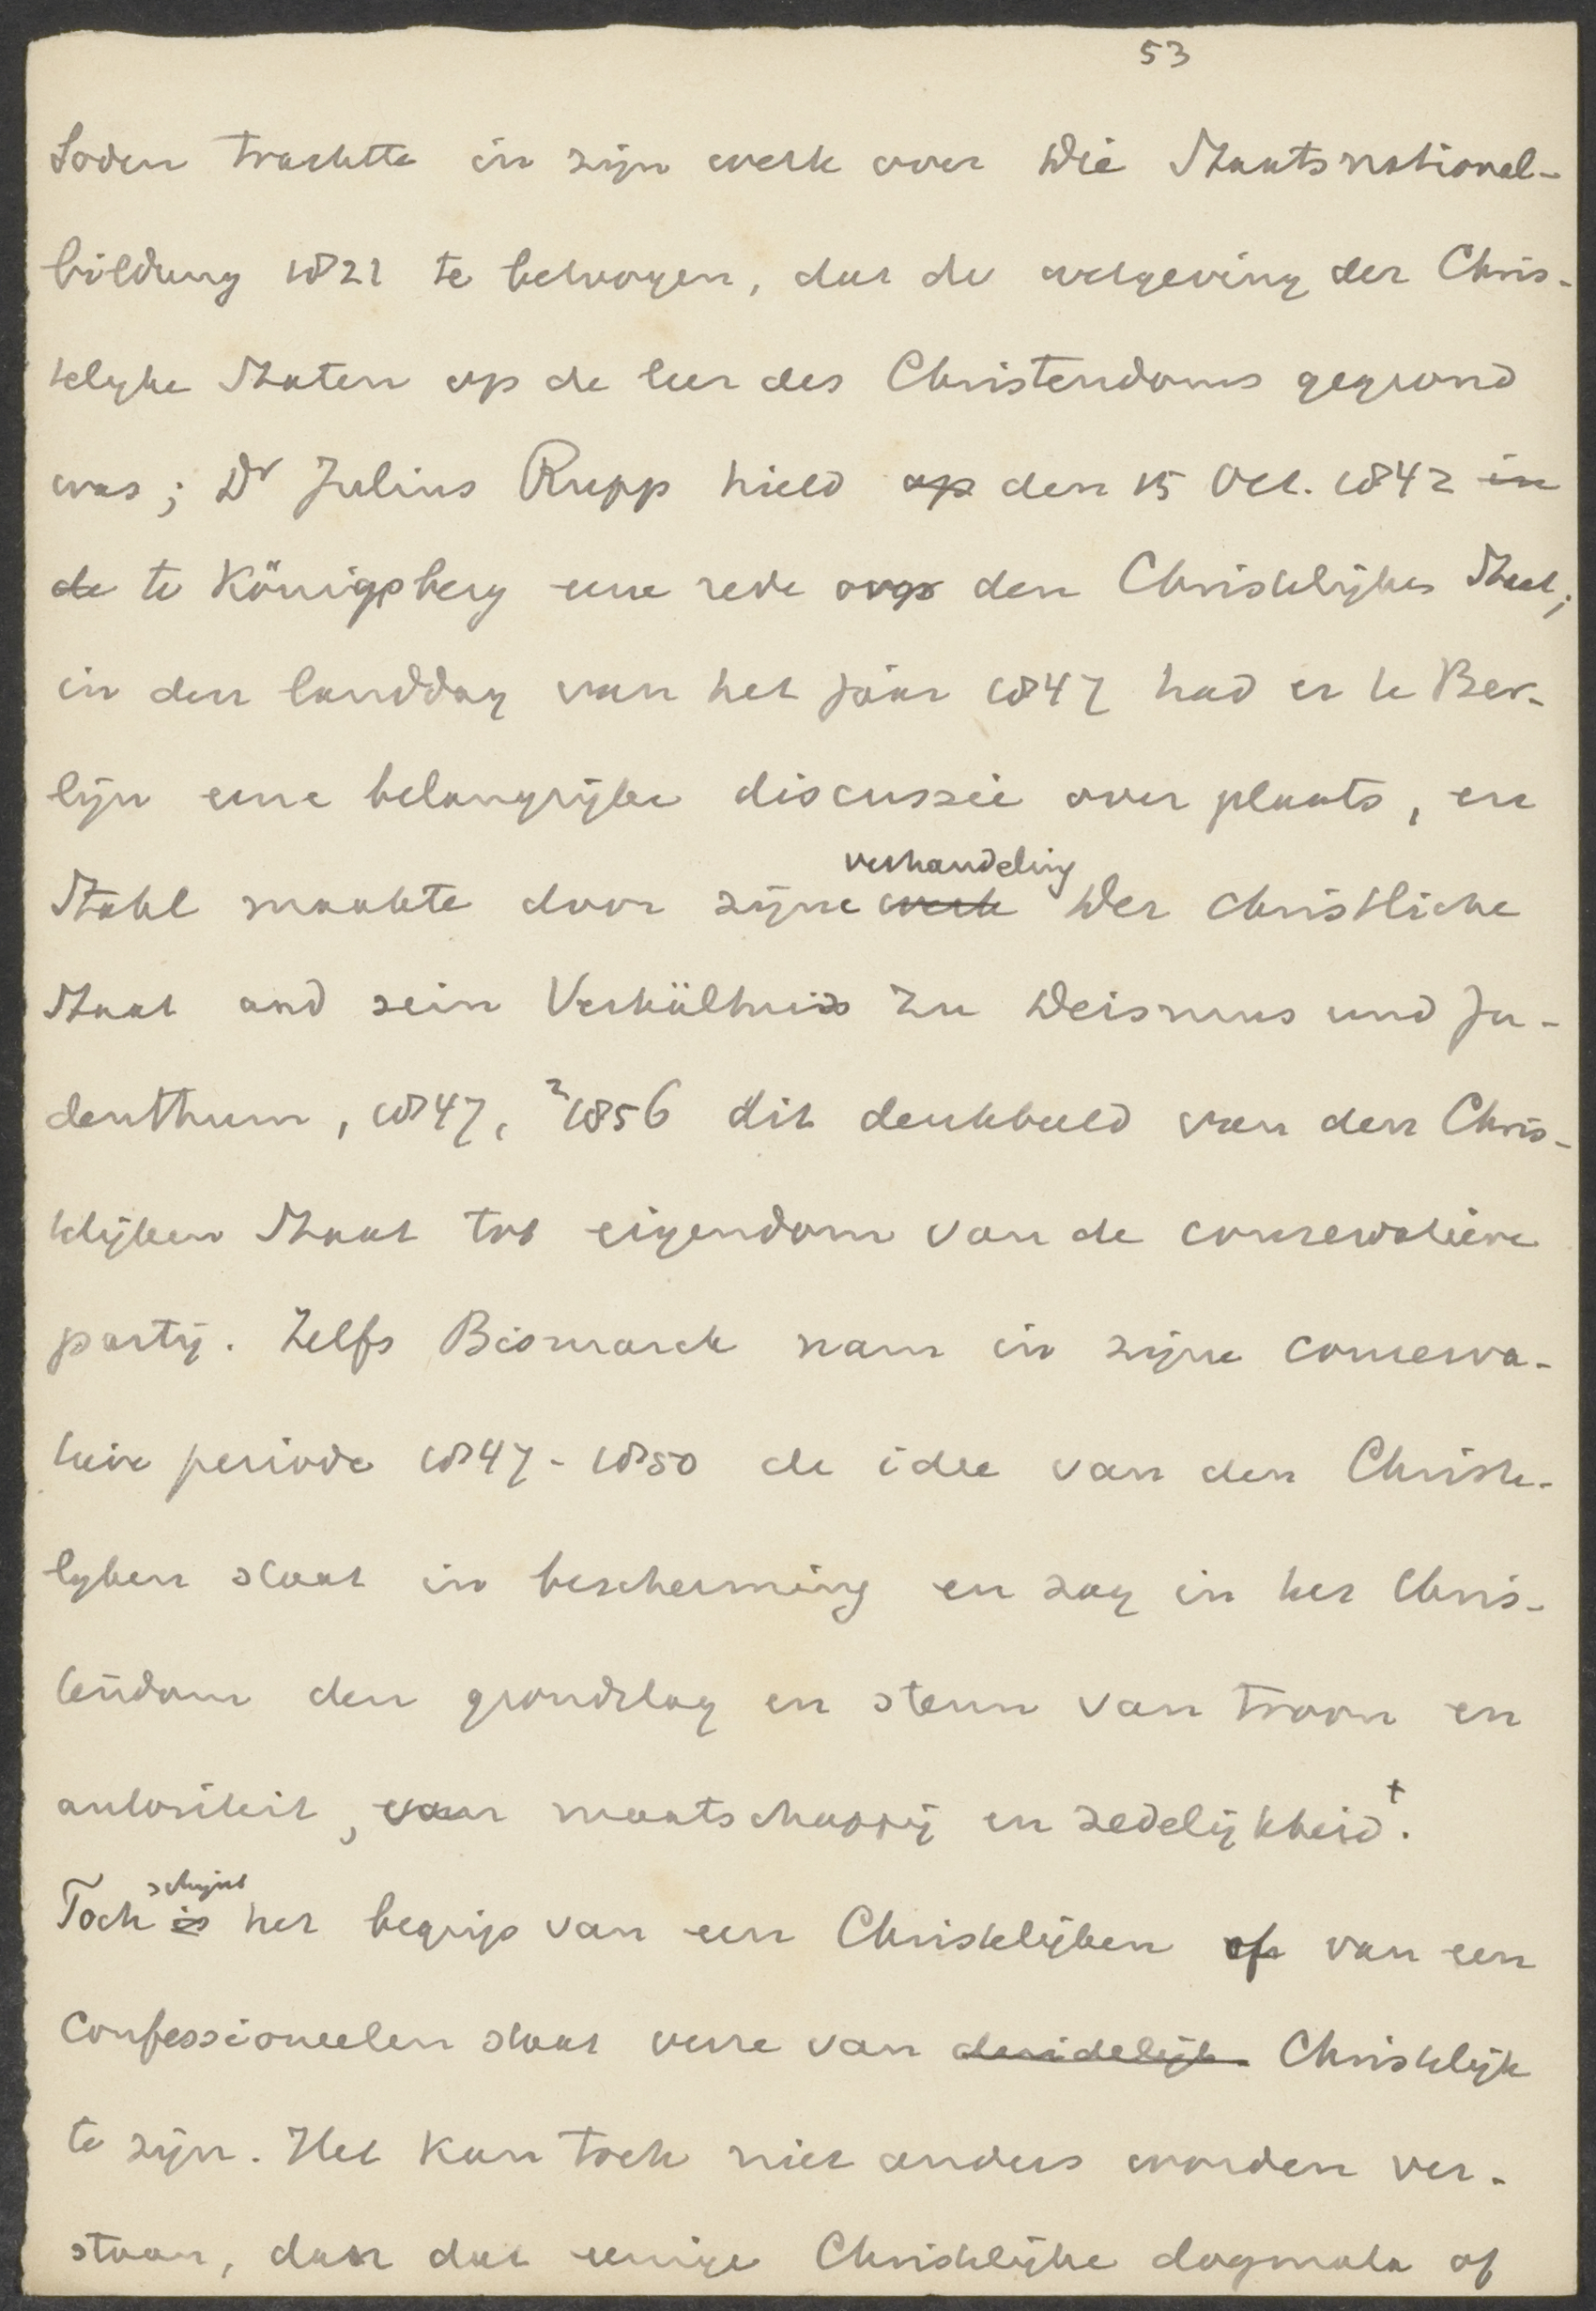 53
Soden trachtte in zijn werk over Die Staatsnational-
bildung 1821 te betoogen, dat de wetgeving der Chris-
telyke Staten op de leer des Christendoms gegrond
was; Dr Julius Rupp hield op den 15 Oct. 1842 in
de te Königsberg eene rede over den Christelijken Staat;
in den landdag van het jaar 1847 had er te Ber-
lijn eene belangrijke discussie over plaats, en
verhandeling
Stahl maakte door zijne werk Der christliche
Staat und sein Verhältniss zu Deismus und Ju-
denthum, 1847, ²1856 dit denkbeeld van den Chris-
telijken Staat tot eigendom van de conservatieve
partij. Zelfs Bismarck nam in zijne conserva-
tieve periode 1847-1850 de idee van den Christe-
lyken staat in bescherming en zag in het Chris-
tendom den grondslag en steun van troon en
autoriteit, van maatschappij en zedelijkheid⁺.
schijnt
Toch is het begrip van een Christelijken of van een
Confessioneelen staat verre van duidelijk Christelijk
te zijn. Het kan toch niet anders worden ver-
staan, dan dat eenige Christelijke dogmata of